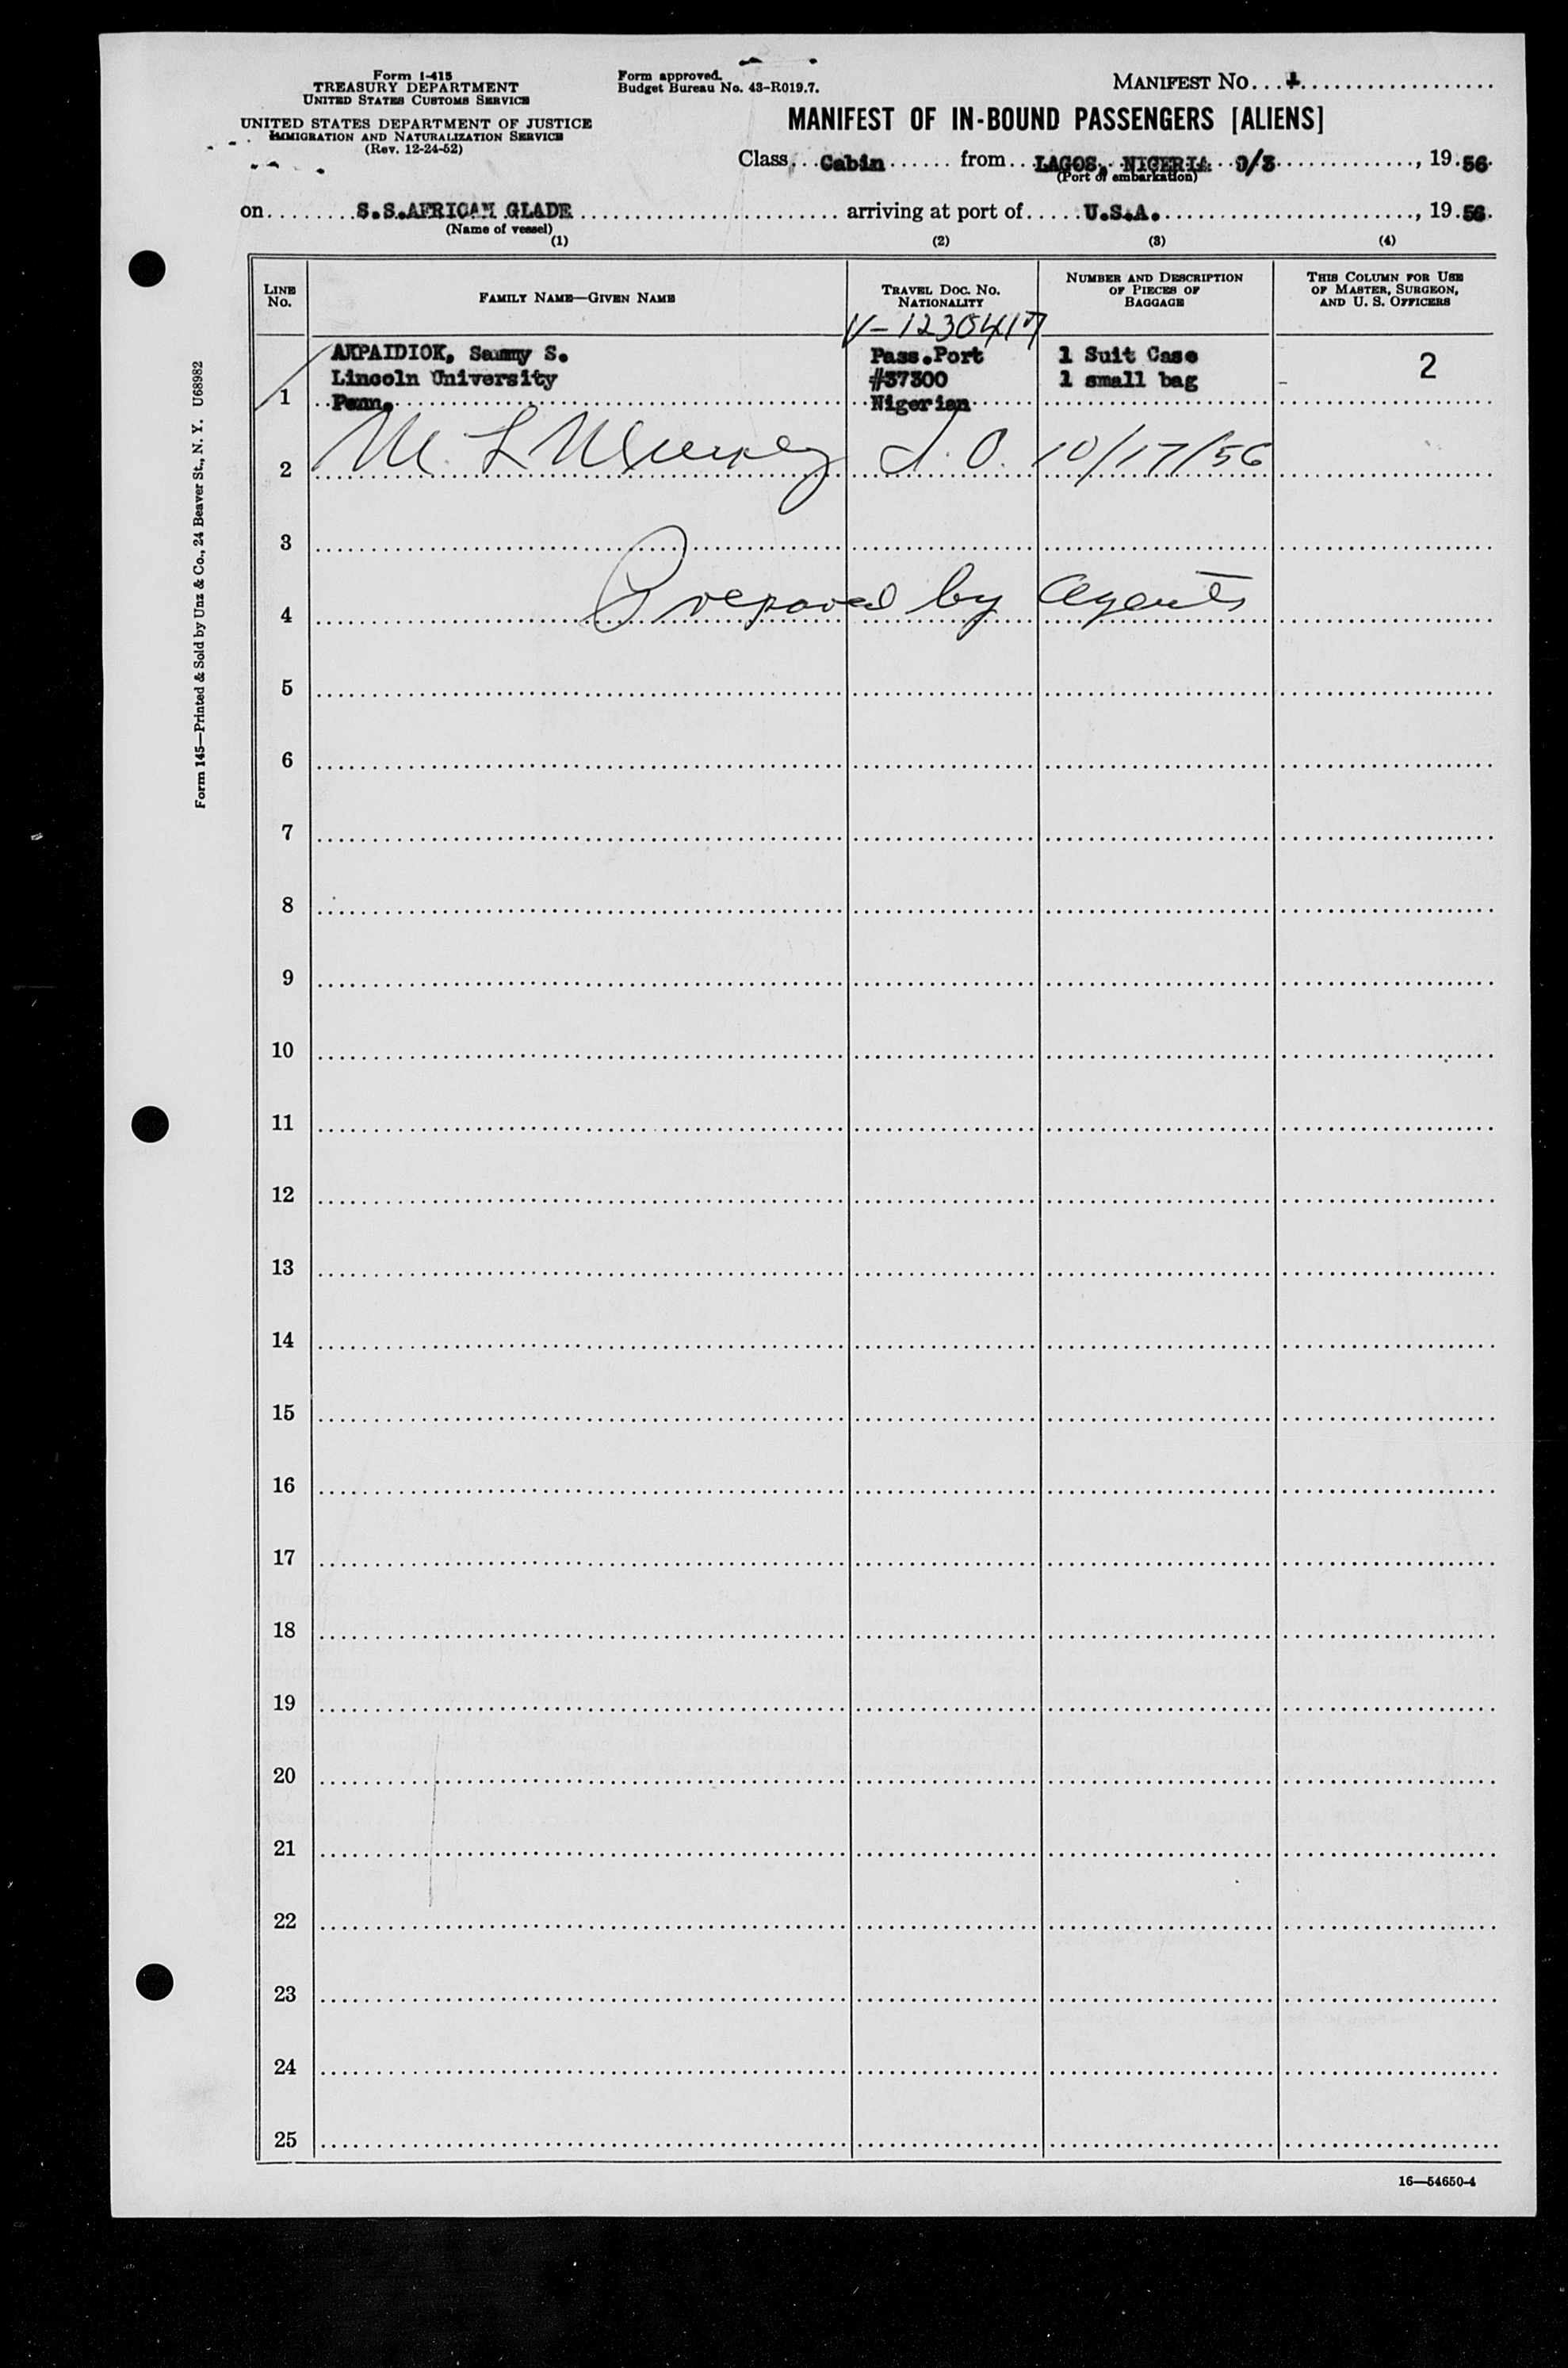 Form I-415
TREASURY DEPARTMENT
UNITED STATES CUSTOMS SERVICE
UNITED STATES DEPARTMENT OF JUSTICE
IMMIGRATION AND NATURALIZATION SERVICE
(Rev. 12-24-52)
Form approved.
Budget Bureau No. 43-R019.7.
MANIFEST NO.
MANIFEST OF IN-BOUND PASSENGERS [ALIENS]
Class Cabin from LAGOS, NIGERIA 9/3, 19 56
(Port of embarkation)
on S.S.AFRICAN GLADE arriving at port of U.S.A., 19 56.
(Name of vessel)
(1) (2) (3) (4)
LINE NO.
FAMILY NAME—GIVEN NAME
TRAVEL DOC. NO.
NATIONALITY
NUMBER AND DESCRIPTION
OF PIECES OF
BAGGAGE
THIS COLUMN FOR USE
OF MASTER, SURGEON,
AND U. S. OFFICERS
V-1230417
AKPAIDIOK, Sammy S. Pass.Port 1 Suit Case 2
Lincoln University #37300 1 small bag
1 Penn. Nigerian
2 10/17/56
3
4 Prepared by Agents
5
6
7
8
9
10
11
12
13
14
15
16
17
18
19
20
21
22
23
24
25
16—54650-4
Form 145—Printed & Sold by Unz & Co., 24 Beaver St., N. Y. U68982